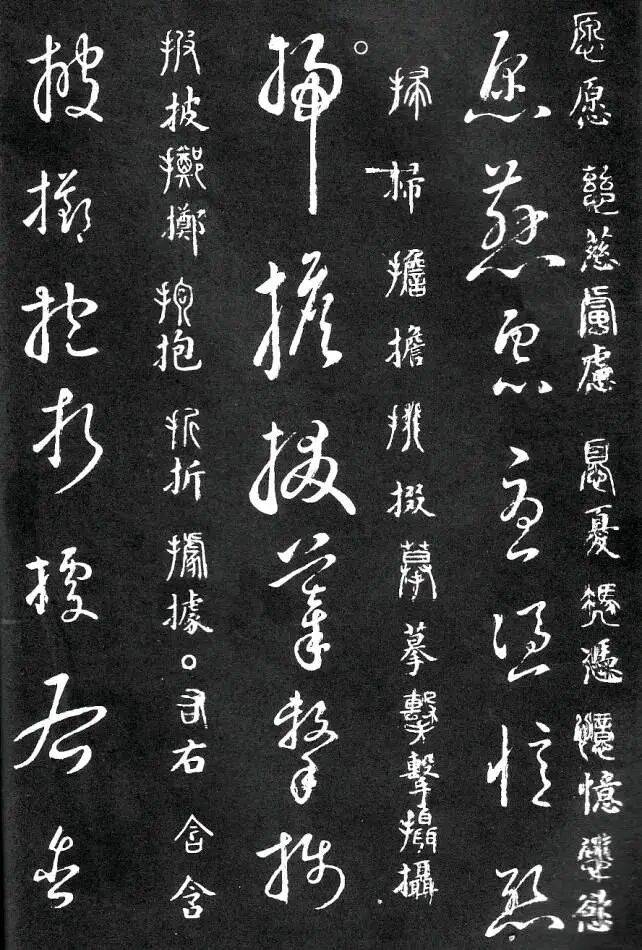 愿愿慈慈慮慮憂憂憑憑憶憶慾慾
愿慈慮憂憑憶慾
掃掃擔擔掇掇摹摹擊擊攝攝
掃擔掇摹擊攝
披披擲擲抱抱折折據據。右右含含
披擲抱折據右含